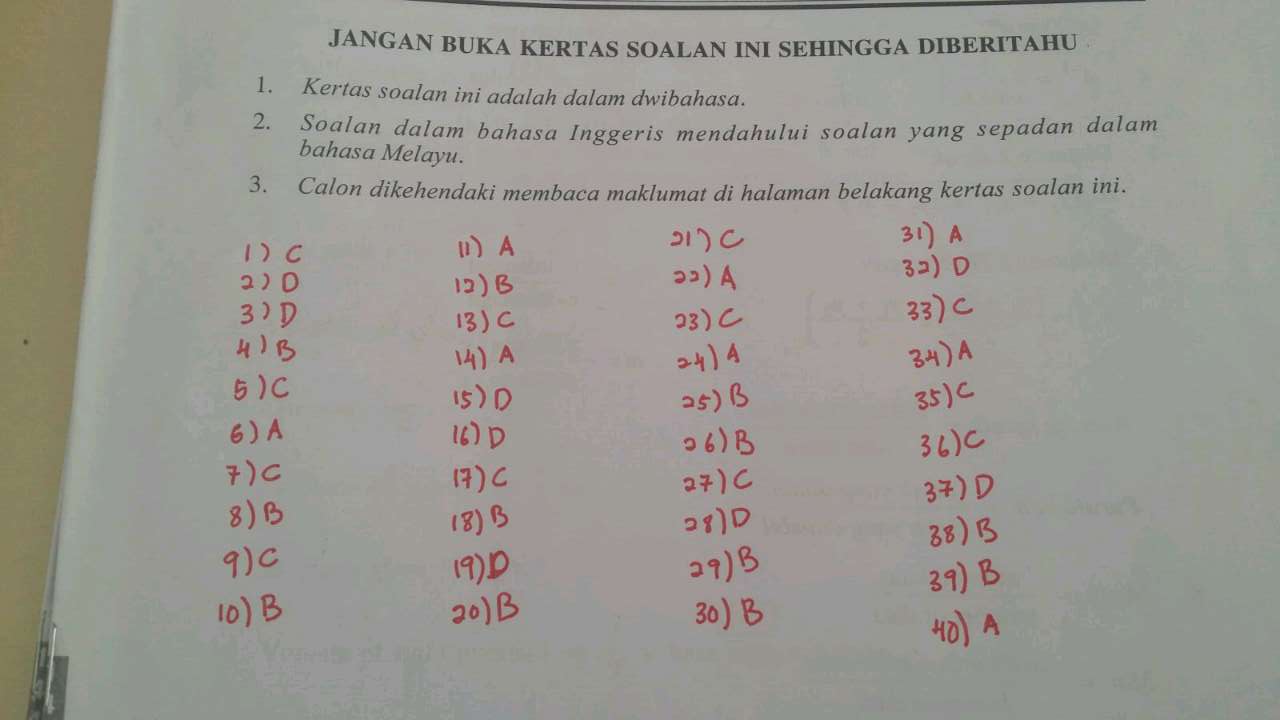 JANGAN BUKA KERTAS SOALAN INI SEHINGGA DIBERITAHU
1. Kertas soalan ini adalah dalam dwibahasa.
2. Soalan dalam bahasa Inggeris mendahului soalan yang sepadan dalam
bahasa Melayu.
3. Calon dikehendaki membaca maklumat di halaman belakang kertas soalan ini.
1) C
2) D
3) D
4) B
5) C
6) A
7) C
8) B
9) C
10) B
11) A
12) B
13) C
14) A
15) D
16) D
17) C
18) B
19) D
20) B
21) C
22) A
23) C
24) A
25) B
26) B
27) C
28) D
29) B
30) B
31) A
32) D
33) C
34) A
35) C
36) C
37) D
38) B
39) B
40) A